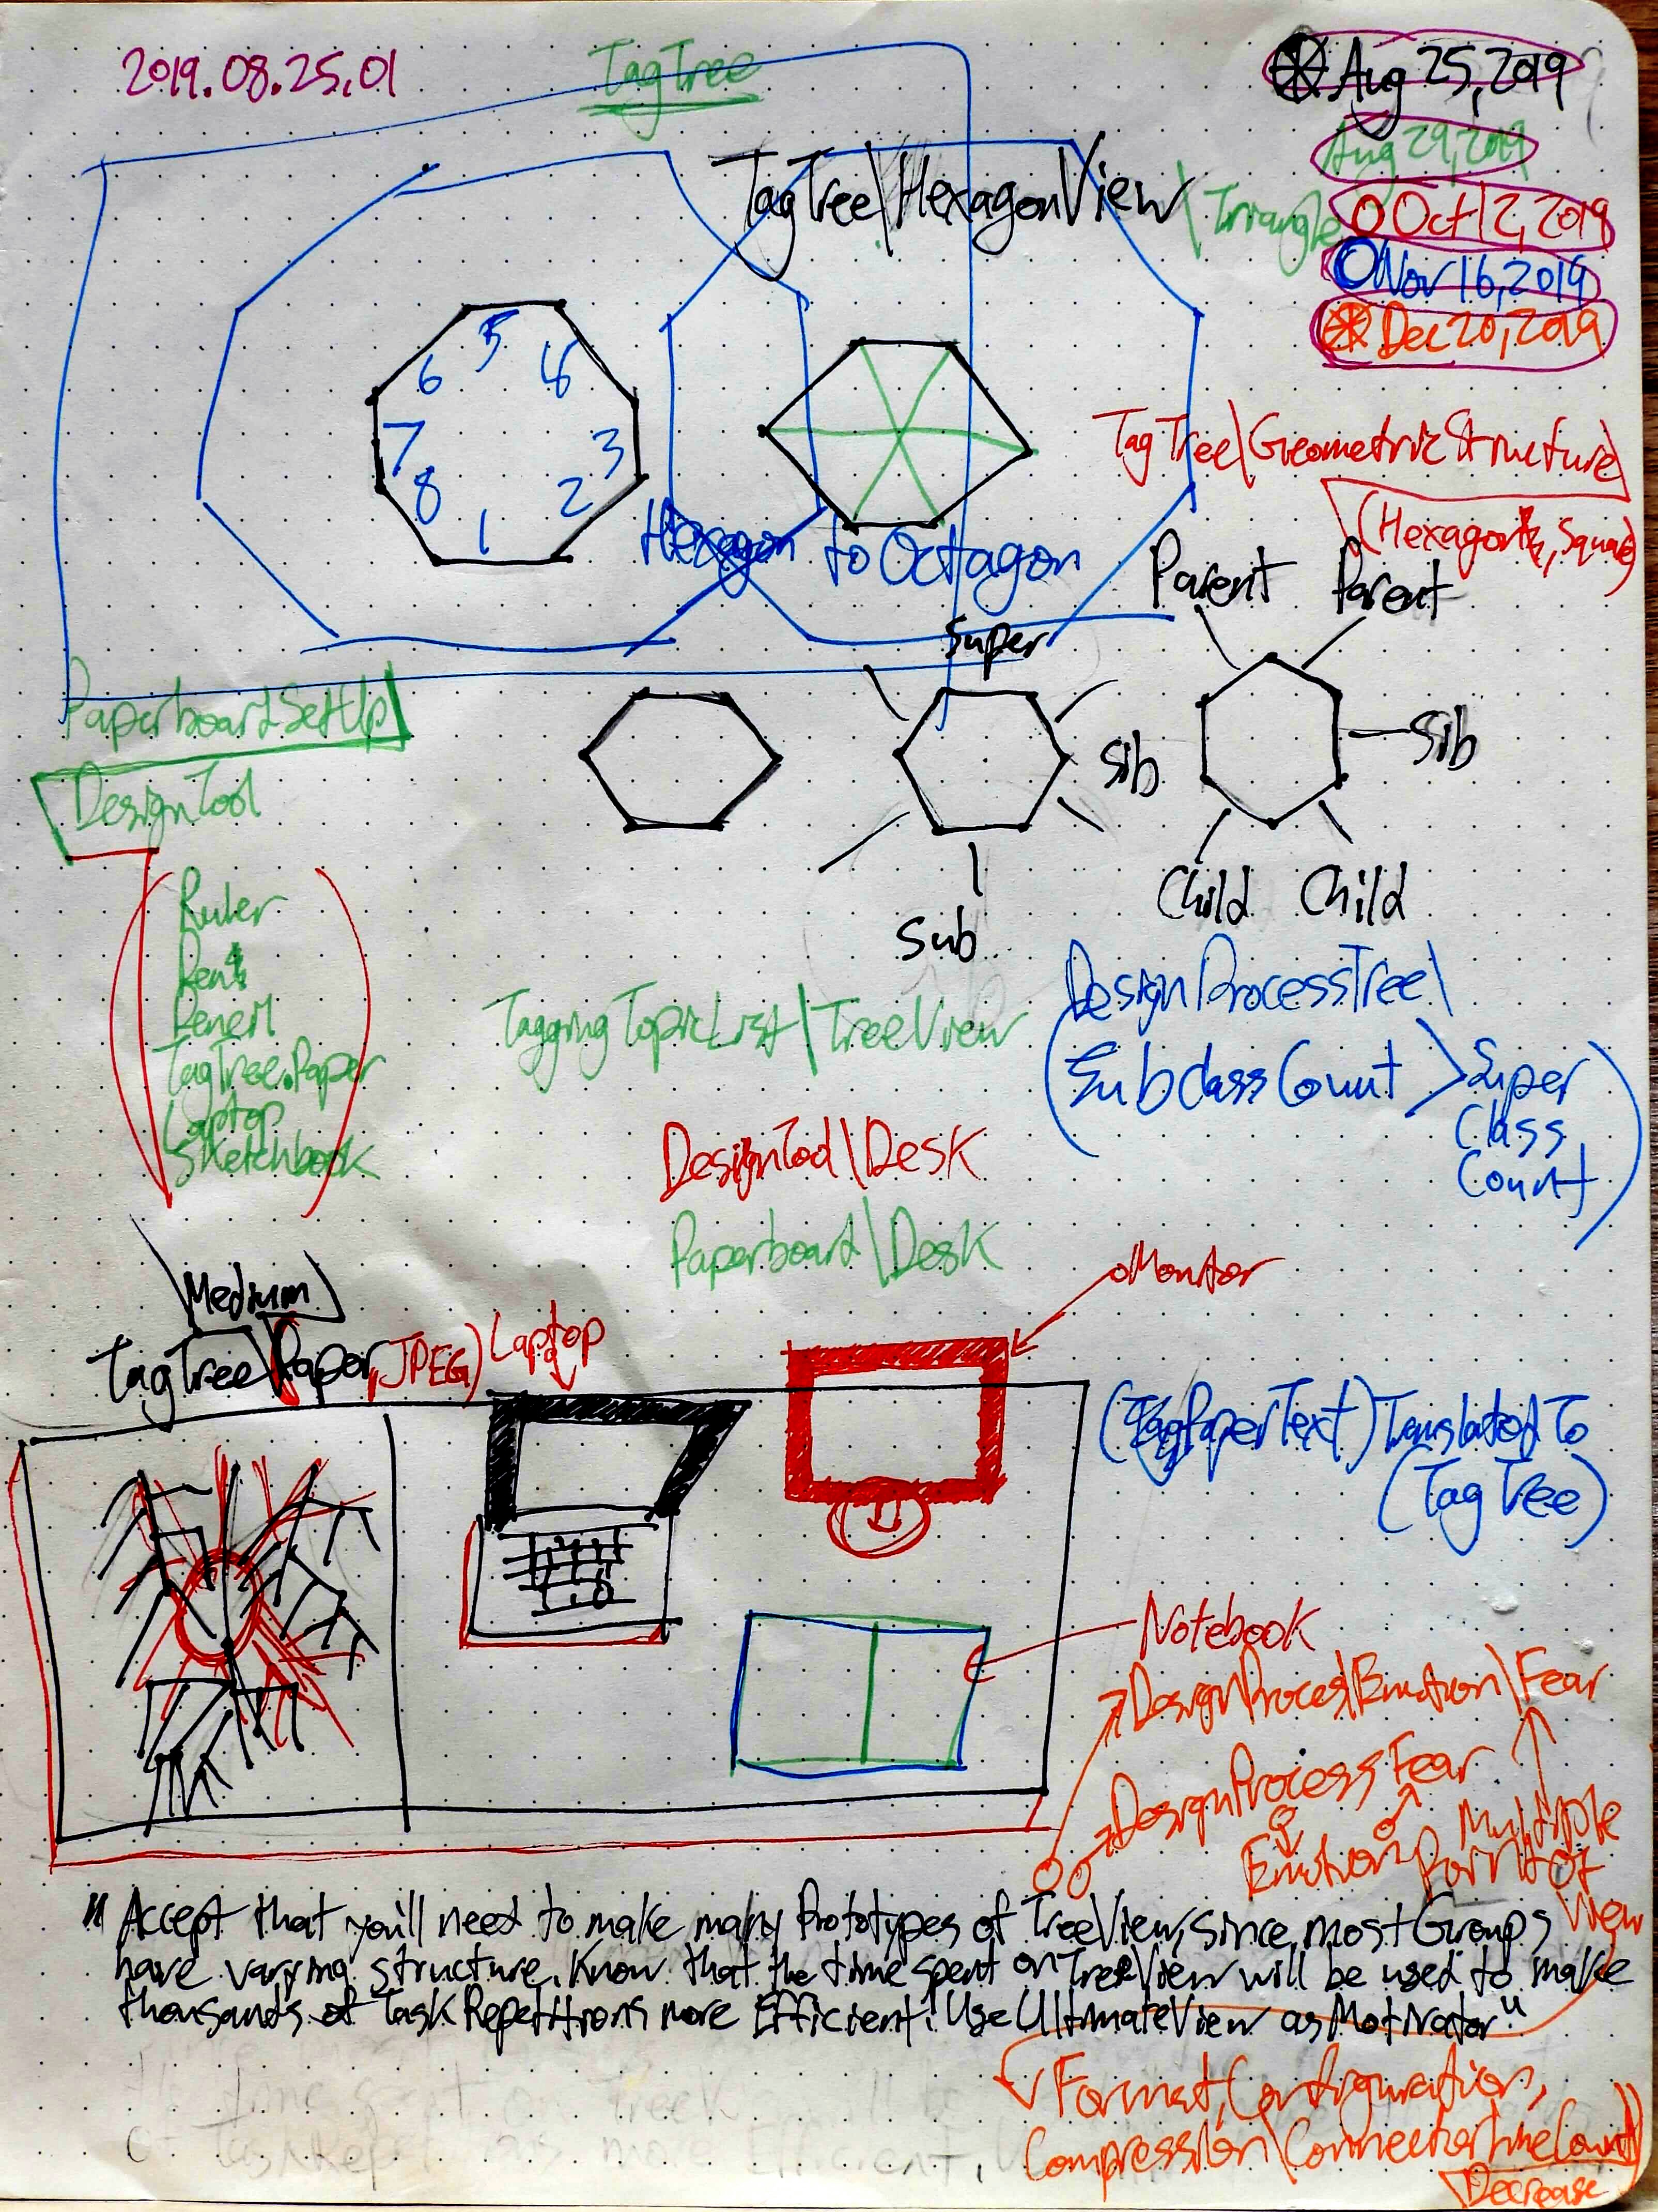 2019.08.25.01
TagTree
Aug 25, 2019
Aug 29, 2019
Oct 12, 2019
Nov 16, 2019
Dec 20, 2019
TagTree\HexagonView\Triangle
5
6
4
7
3
8
2
1
TagTree\GeometricStructure
(Hexagon, Square)
Hexagon to Octagon
Parent Parent
Super
Sib
Sib
Child Child
Sub
PaperboardSetUp
DesignTool
Ruler
Pens
Pencil
TagTree.Paper
Laptop
Sketchbook
TaggingTopicList\TreeView
DesignProcessTree\
(SubclassCount > Super
Class
Count)
DesignTool\Desk
Paperboard\Desk
Monitor
Medium
TagTree\Paper, JPEG)
Laptop
(TagPaperText) TranslatedTo
(TagTree)
Notebook
DesignProcess\Emotion\Fear
DesignProcess Fear
Emotion
Multiple
Point Of
View
"Accept that you'll need to make many Prototypes of TreeView, since most Groups
have varying structure. Know that the time spent on TreeView will be used to make
thousands of Task Repetitions more Efficient! Use UltimateView as Motivator"
Format, Configuration,
Compression\ConnectorLineCount)
Decrease